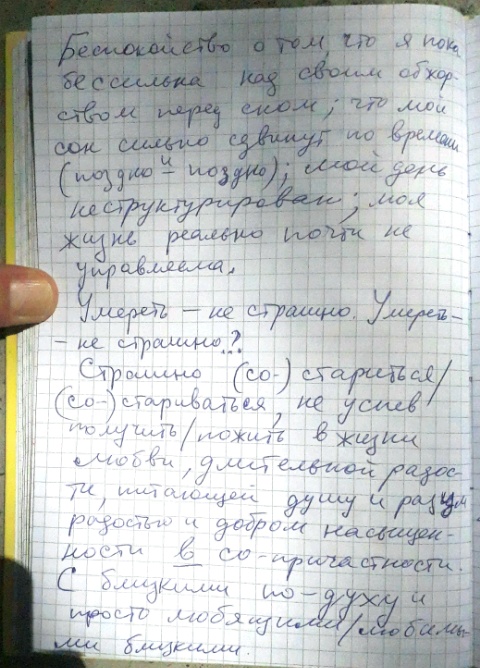 Беспокойство о том, что я пока
бессильна над своим обжор-
ством перед сном; что мой
сон сильно сдвинут по времени
(поздно и - поздно); мой день
неструктурирован; моя
жизнь реально почти не
управляема.
Умереть – не страшно. Умереть –
- не страшно..?
Страшно (со-) стариться/
(со-) стариваться, не успев
получить/пожить в жизни
любви, длительной радос-
ти, питающей душу и разум
радостью и добром насыщен-
ности в со-причастности.
С близкими по-духу и
просто любящими/любимы-
ми близкими.